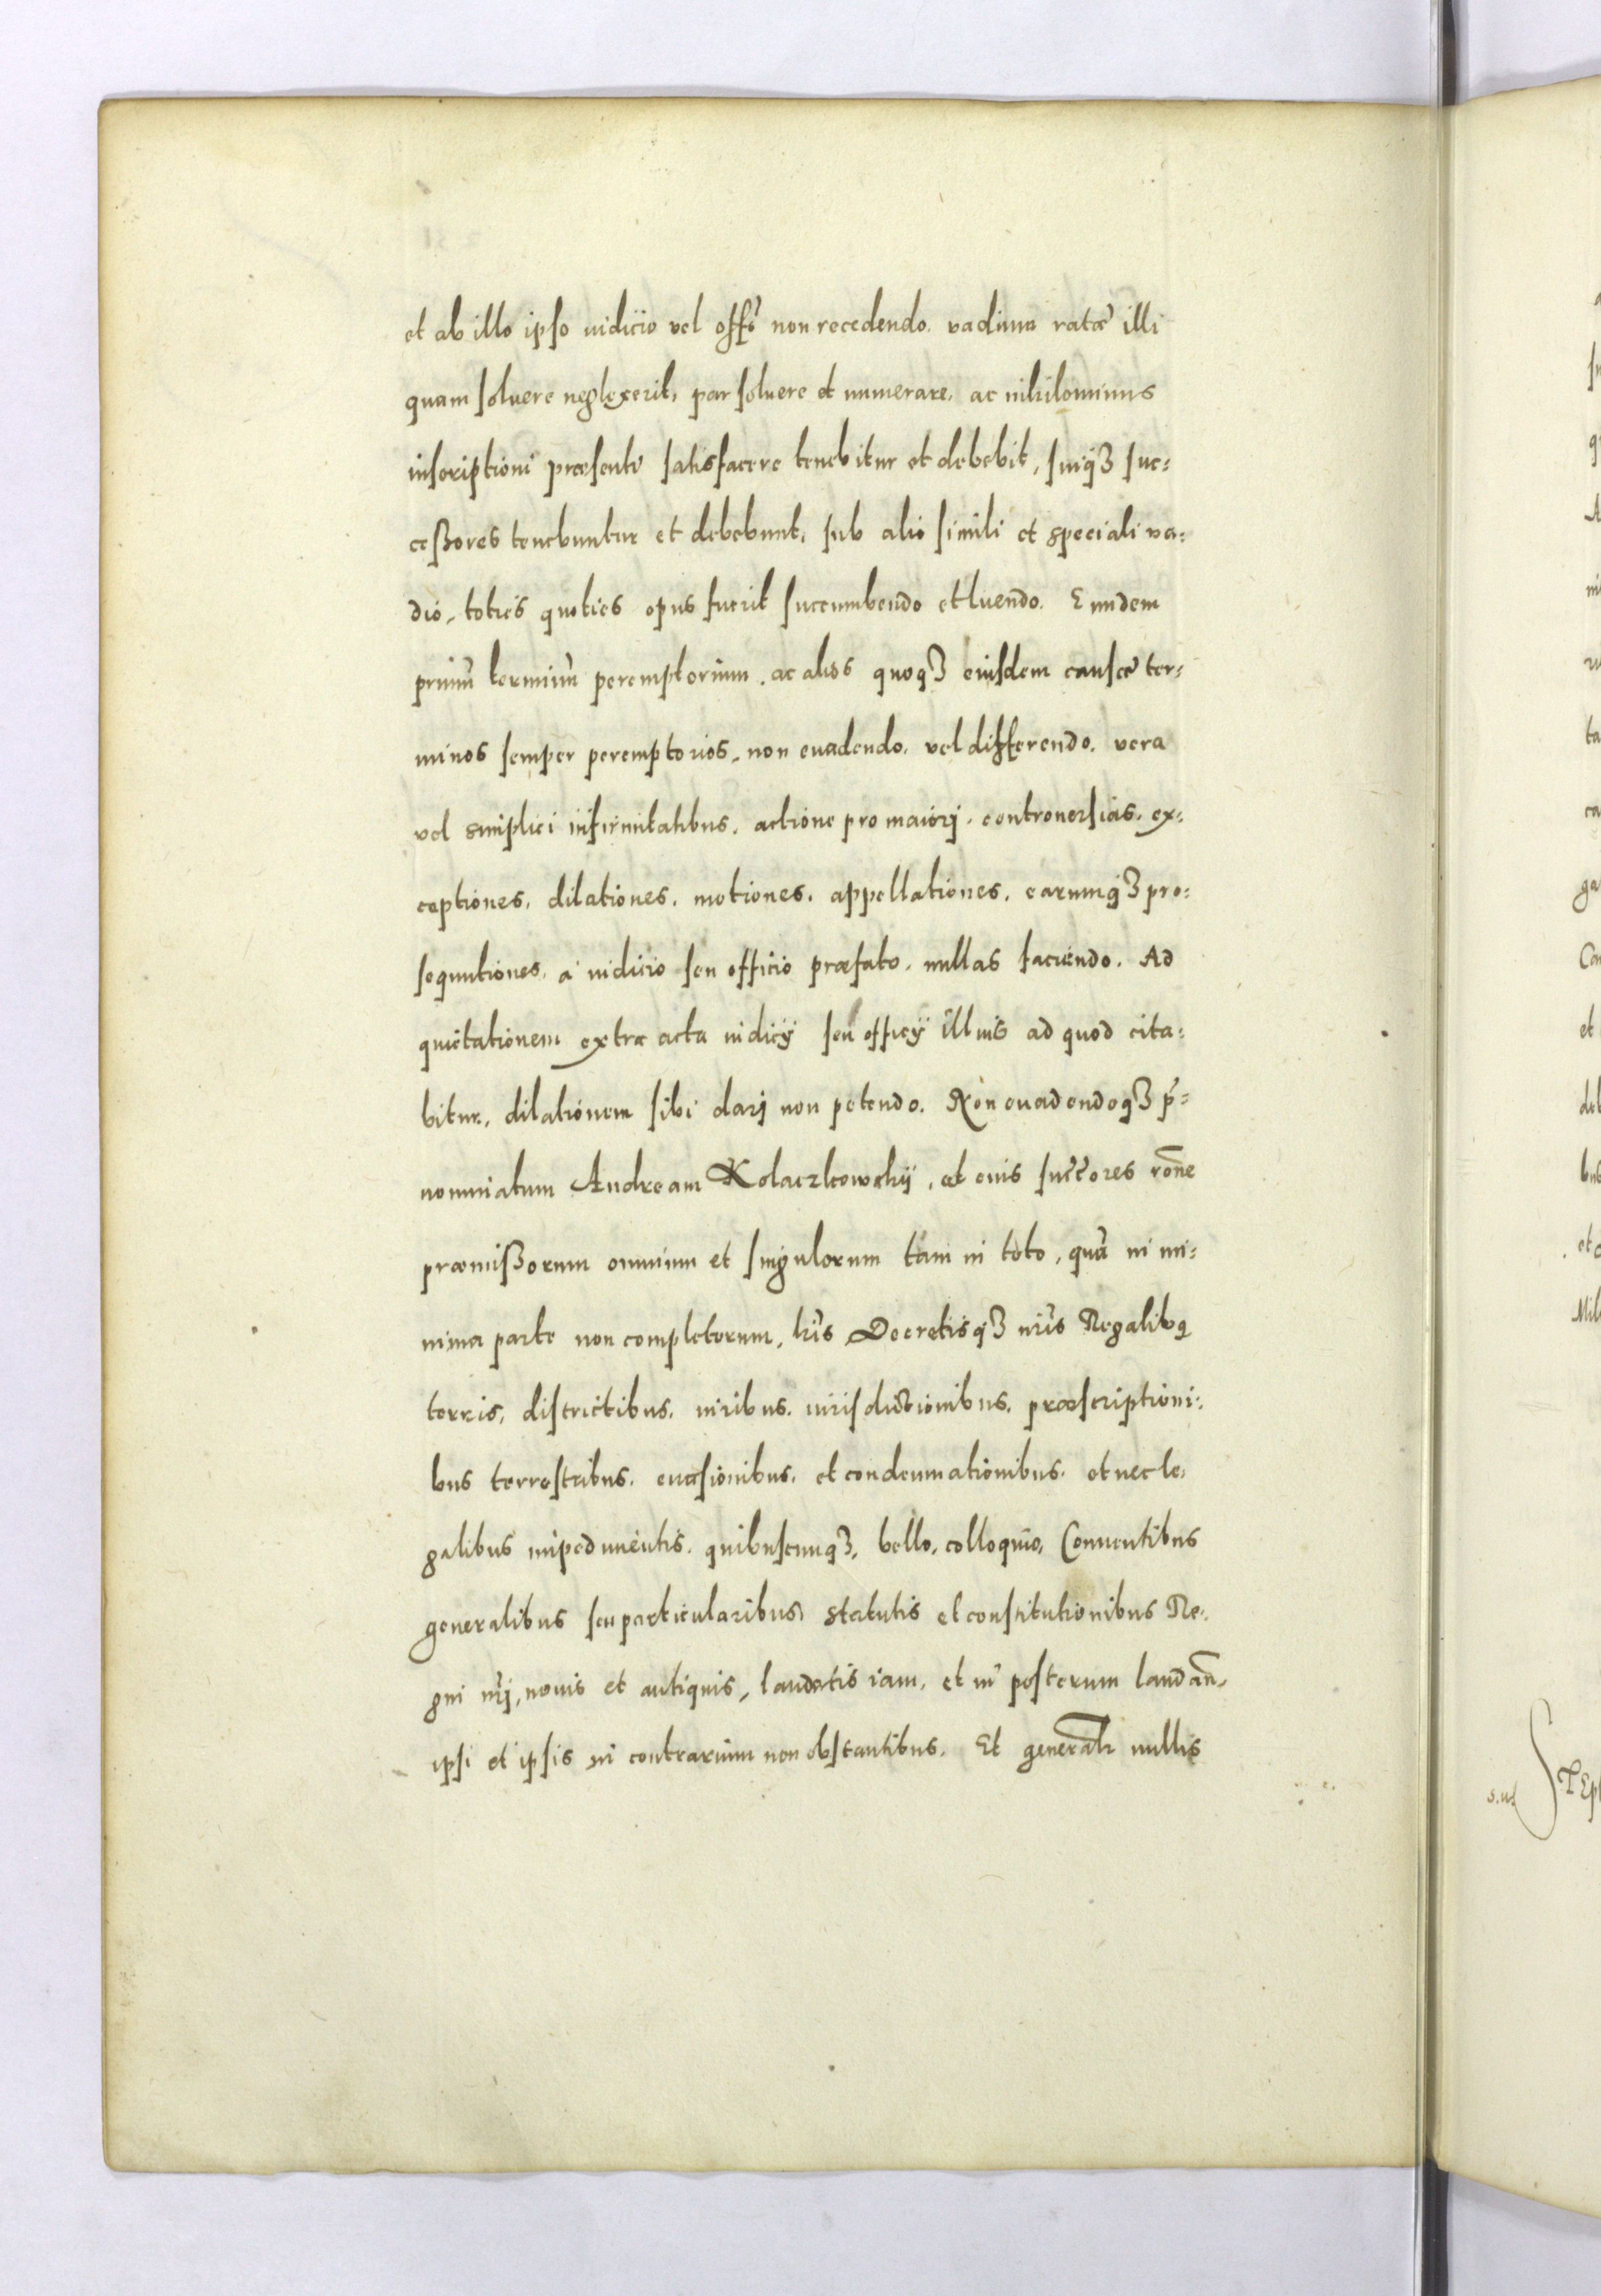 et ab illo ipso iudicio vel offi͠o non recedendo. vadium ratæ illi
quam soluere neglexerit, par soluere et numerare, ac nihilominus
inscriptioni præsenti satisfacere tenebitur et debebit, suiq3 suc=
ceßores tenebuntur et debebunt, sub alio simili et speciali va=
dio, toties quoties opus fuerit succumbendo et luendo. Eundem
primũ terminũ peremptorium. ac alios quoq3 eiusdem causæ ter=
minos semper peremptorios, non euadendo, vel differendo. vera
vel simplici infirmitatibus. actione pro maiori. controuersias. ex=
ceptiones. dilationes. motiones. appellationes. earumq3 pro=
sequutiones, a iudicio seu officio præfato, nullas faciendo. Ad
quietationem extra acta iudicÿ seu officÿ illius ad quod cita=
bitur, dilationem sibi darj non petendo. Non euadendoq3 p̃=
nominatum Andream Kolaczkowskÿ, et eius succ͠ores ro͠ne
præmißorum omnium et singulorum tam in toto, quã in mi=
nima parte non completorum, hĩs Decretisq3 nr͠is Regalibq
terris, districtibus. iuribus. iurisdictionibus. præscriptioni=
bus terrestribus. euasionibus. et condemnationibus. et nec le=
galibus impedimentis. quibuscunq3, bello, colloquio, Conuentibus
generalibus seu particularibus, statutis et constitutionibus Re=
gni nr͠j, nouis et antiquis, laudatis iam, et in posterum laudan͠,
ipsi et ipsis in contrarium non obstantibus. Et general͠r nullis